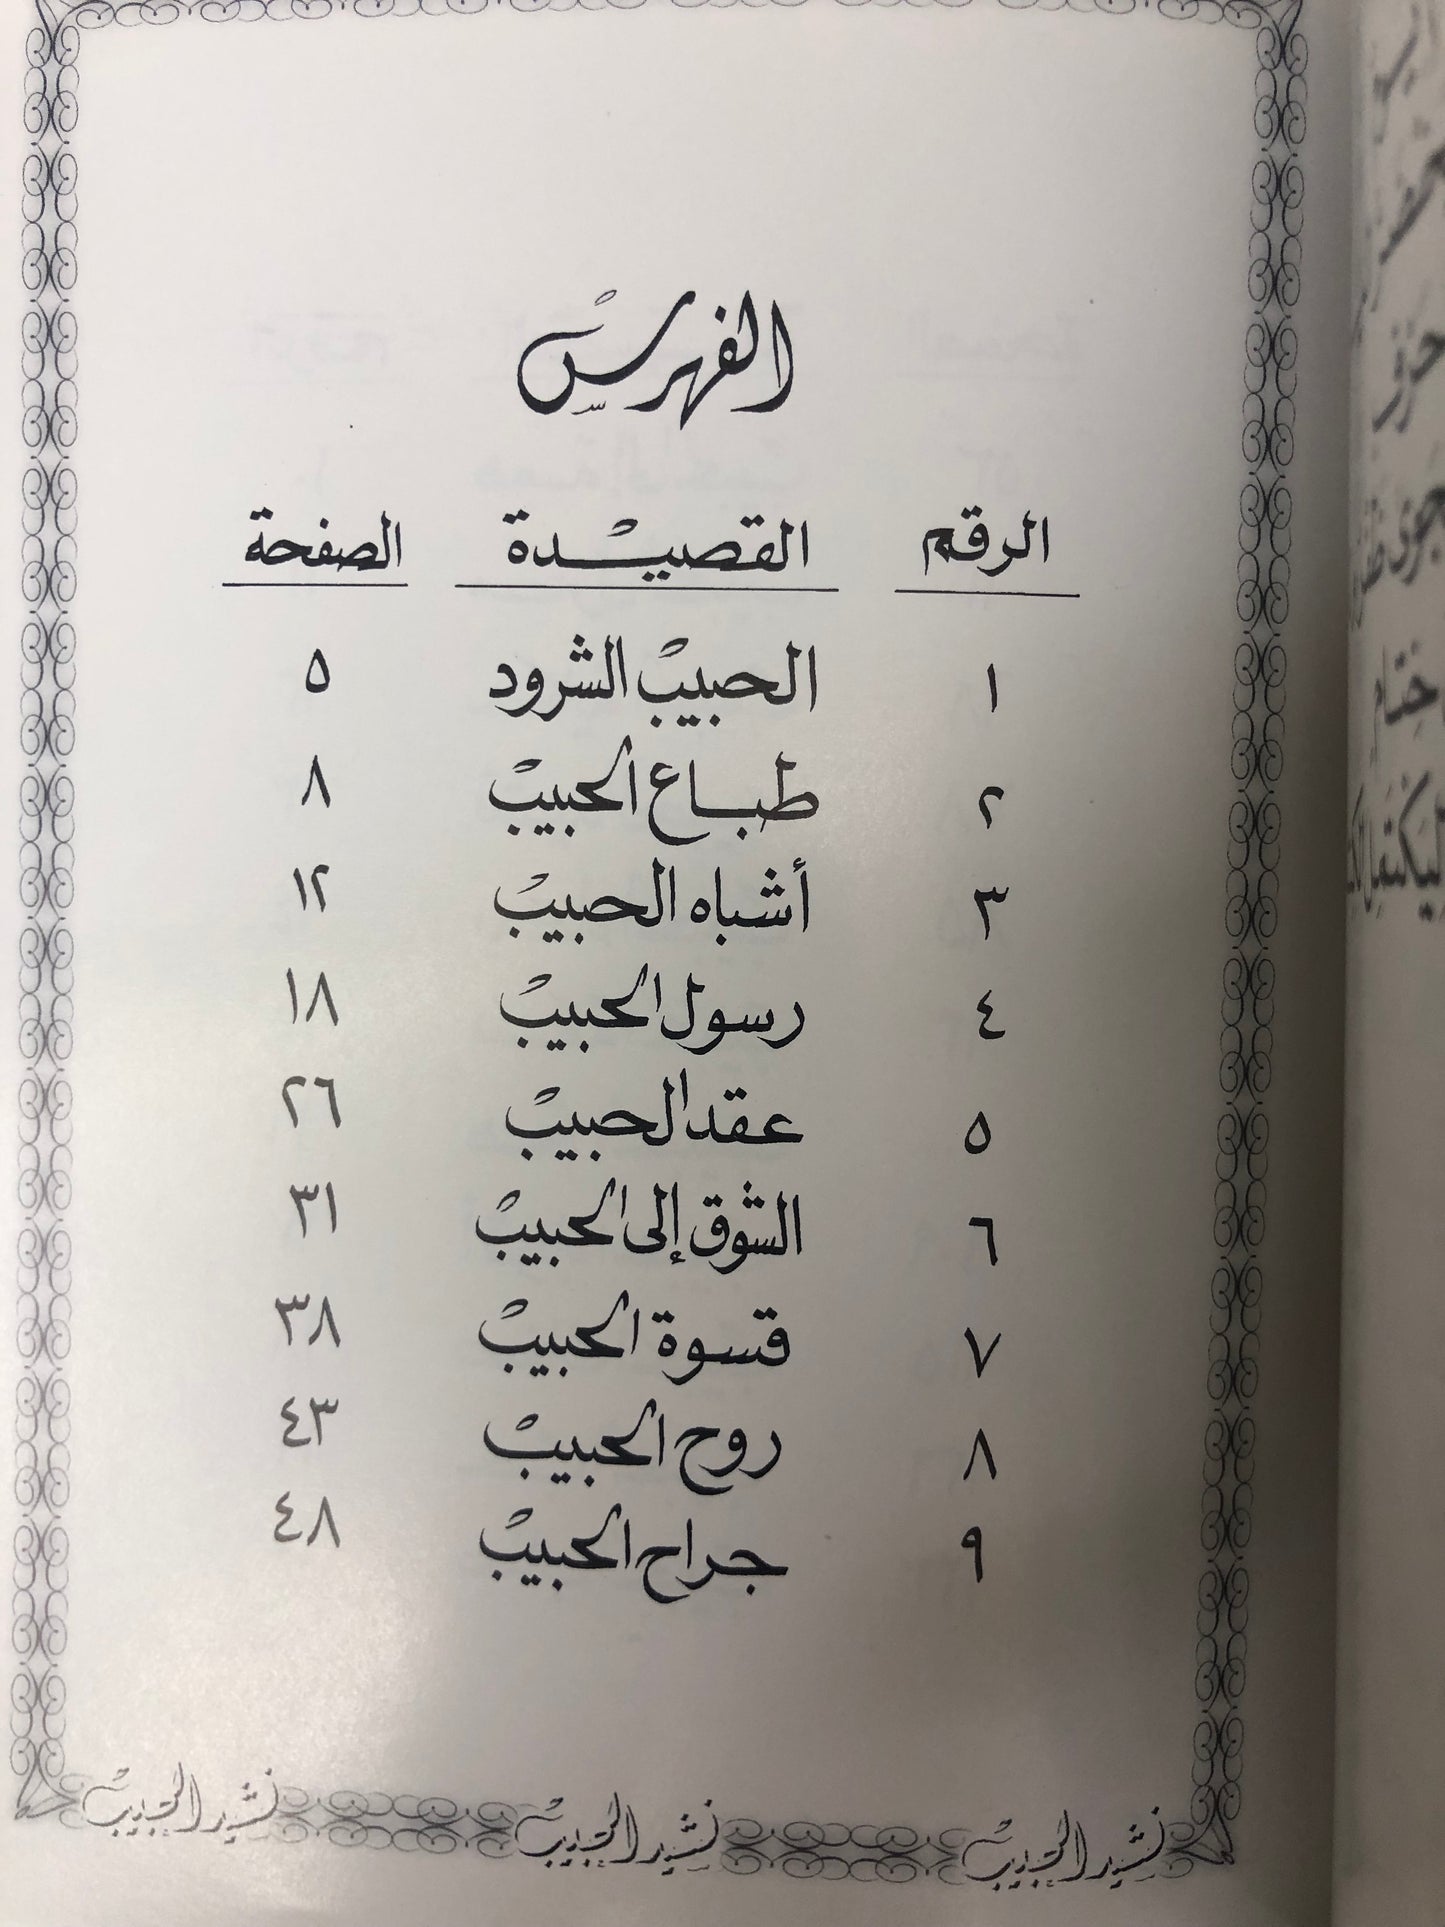 الفهرس
الرقم القصيدة الصفحة
١ الحبيب الشرود ٥
٢ طباع الحبيب ٨
٣ أشباه الحبيب ١٢
٤ رسول الحبيب ١٨
٥ عقد الحبيب ٢٦
٦ الشوق إلى الحبيب ٣١
٧ قسوة الحبيب ٣٨
٨ روح الحبيب ٤٣
٩ جراح الحبيب ٤٨
نشيد الحبيب نشيد الحبيب نشيد الحبيب
ختام